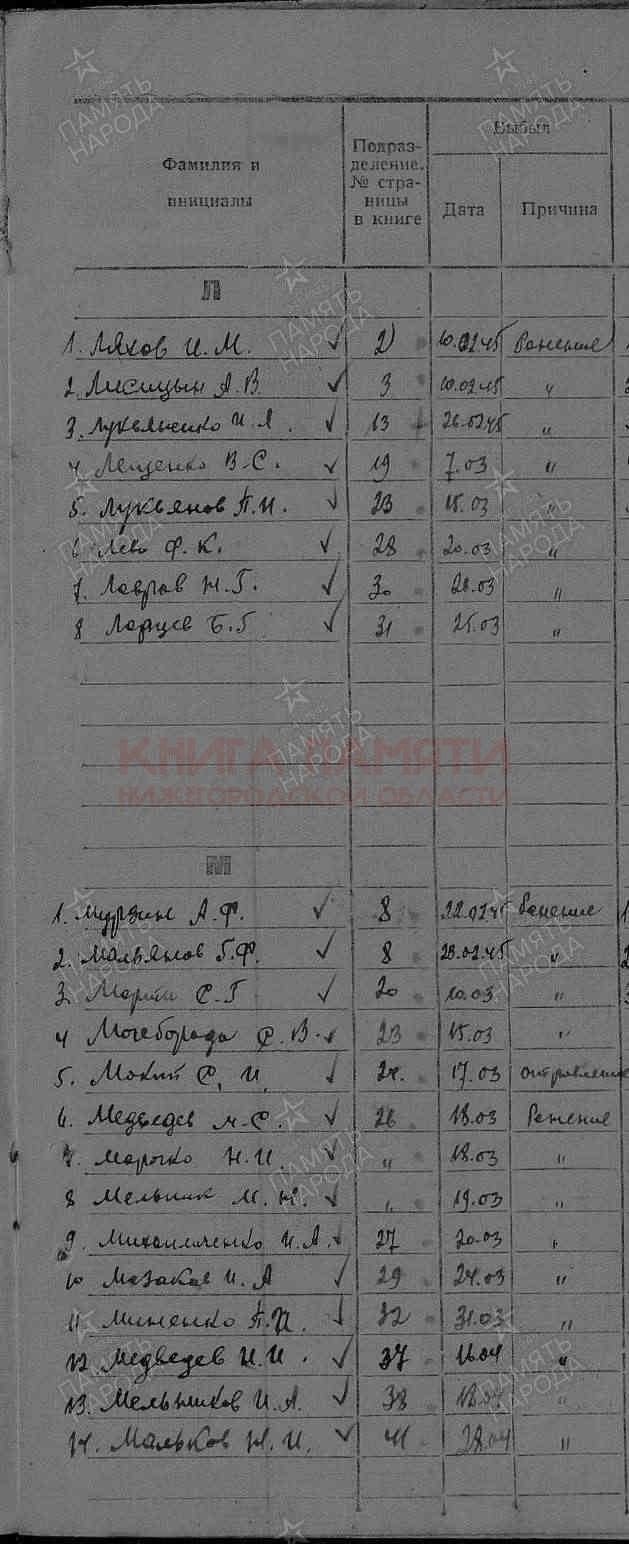 ПАМЯТЬ НАРОДА
Фамилия и инициалы
Подраз-
деление.
№ стра-
ницы
в книге
Выбыл
Дата
Причина
Л
1. Ляхов И. М. ✓ 2 10.02.45 Ранение
2. Лисицын А. В ✓ 3 10.02.45 "
3. Лукьяненко И. Я. ✓ 13 26.02.45 "
4 Лещенко В. С. ✓ 19 7.03 "
5. Лукьянов П. И. ✓ 23 15.03 "
6 Лева Ф. К. ✓ 28 20.03 "
7. Лавров Н. Г. ✓ 30 28.03 "
8 Ларцев Б. Г ✓ 31 25.03 "
КНИГА ПАМЯТИ
НИЖЕГОРОДСКОЙ ОБЛАСТИ
М
1. Мурзин А. Ф. ✓ 8 22.02.45 Ранение
2. Мальянов Г. Ф. ✓ 8 23.02.45 "
3. С. Г ✓ 20 10.03 "
4 С. В. ✓ 23 15.03 "
5. С. И. ✓ 24. 17.03
6. Медведев М. С. ✓ 26 18.03 Ранение
7. Марочко Н. И. ✓ " 18.03 "
8 Мельник М. Н. ✓ " 19.03 "
9. Михайличенко И. А. ✓ 27 20.03 "
10 Мазаков И. А ✓ 29 24.03 "
11 Миненко П. И. ✓ 32 31.03 "
12 Медведев И. И. ✓ 37 16.04 "
13. Мельников И. А. ✓ 38 18.04 "
14. Мальков Н. И. ✓ 41 28.04 "